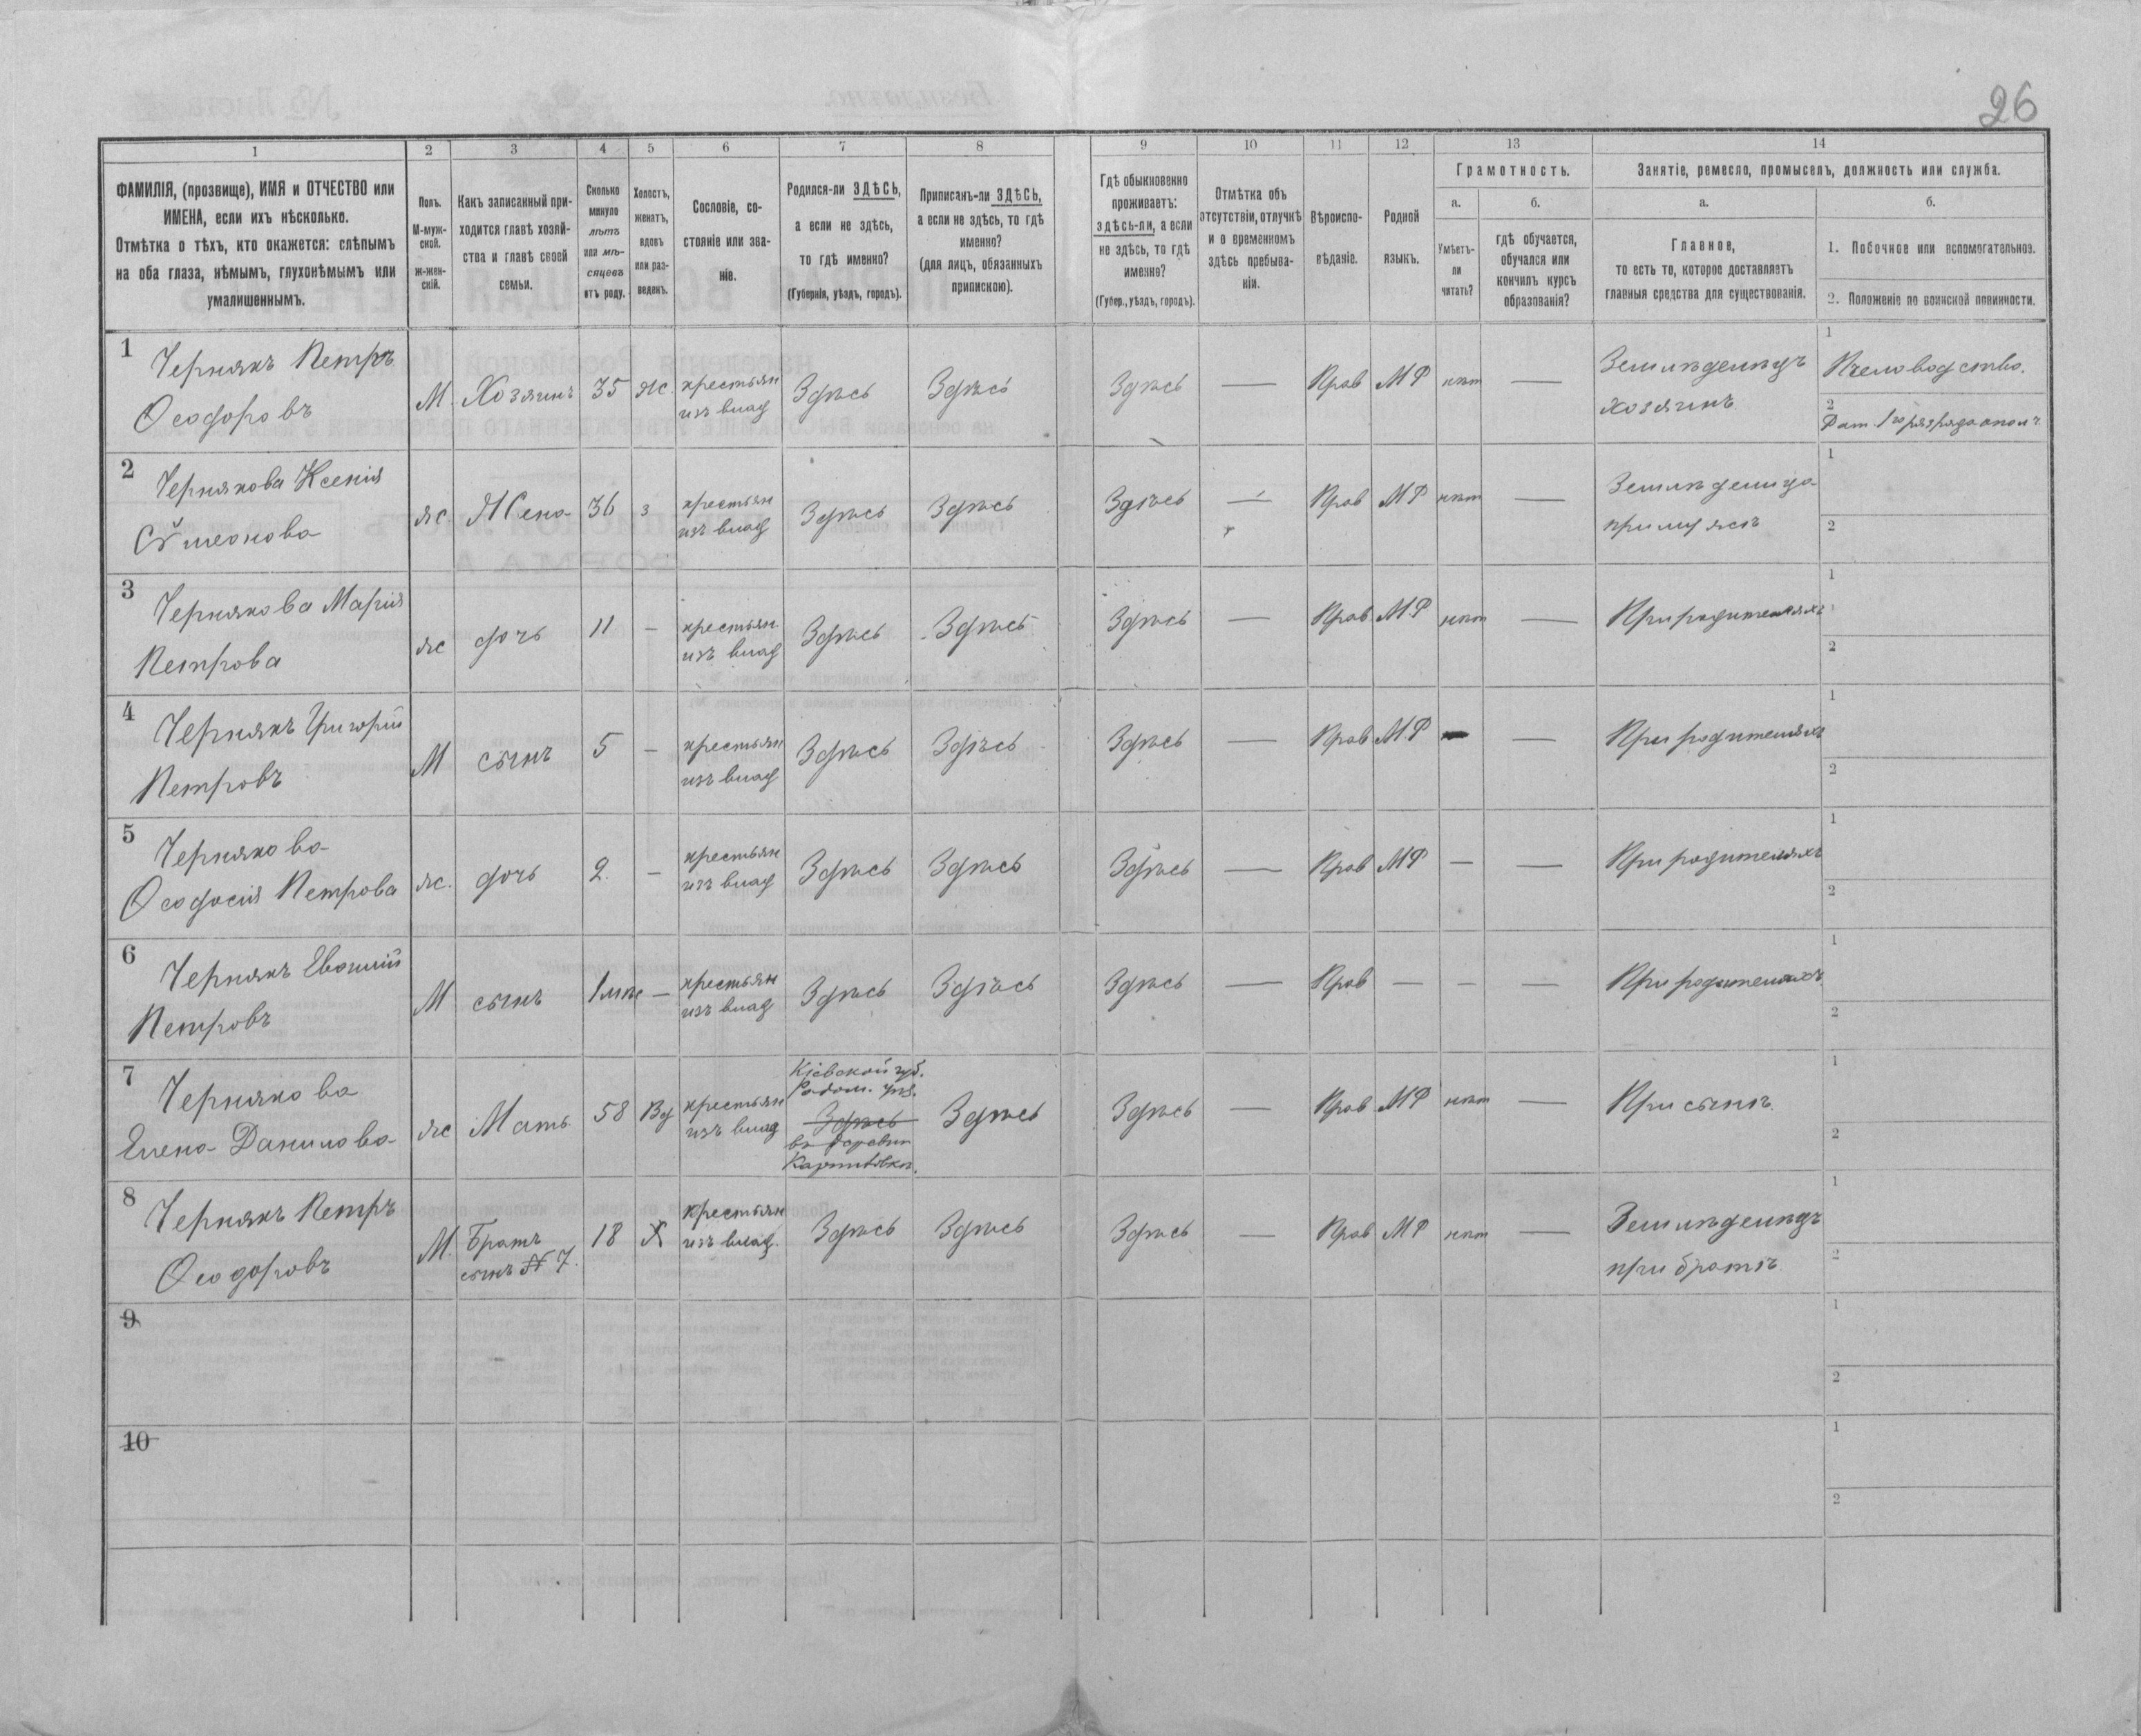 26
1 2 3 4 5 6 7 8 9 10 11 12 13 14
ФАМИЛІЯ, (прозвище), ИМЯ и ОТЧЕСТВО или
ИМЕНА, если ихъ нѣсколько.
Отмѣтка о тѣхъ, кто окажется: слѣпымъ
на оба глаза, нѣмымъ, глухонѣмымъ или
умалишеннымъ.
Полъ.
М-муж-
ской.
ж-жен-
скій.
Какъ записанный при-
ходится главѣ хозяй-
ства и главѣ своей
семьи.
Сколько
минуло
лѣтъ
или мѣ-
сяцевъ
отъ роду.
Холостъ,
женатъ,
вдовъ
или раз-
веденъ.
Сословіе, со-
стояніе или зва-
ніе.
Родился-ли ЗДѢСЬ,
а если не здѣсь,
то гдѣ именно?
(Губернія, уѣздъ, городъ).
Приписанъ-ли ЗДѢСЬ,
а если не здѣсь, то гдѣ
именно?
(для лицъ, обязанныхъ
припискою).
Гдѣ обыкновенно
проживаетъ:
здѣсь-ли, а если
не здѣсь, то гдѣ
именно?
(Губер., уѣздъ, городъ).
Отмѣтка объ
отсутствіи, отлучкѣ
и о временномъ
здѣсь пребыва-
ніи.
Вѣроиспо-
вѣданіе.
Родной
языкъ.
Грамотность.
а.
Умѣетъ-
ли
читать?
б.
гдѣ обучается,
обучался или
кончилъ курсъ
образованія?
Занятіе, ремесло, промыселъ, должность или служба.
а.
Главное,
то есть то, которое доставляетъ
главныя средства для существованія.
б.
1. Побочное или вспомогательное.
2. Положеніе по воинской повинности.
1
Чернякъ Петръ
Ѳеодоровъ
М. Хозяинъ 35 Ж. крестьян
изъ влад
Здѣсь Здѣсь Здѣсь — Прав МР нѣт —
Земледѣлецъ
хозяинъ
1
Пчеловодство.
2
Рат. 1го разряда опол ч.
2
Чернякова Ксенія
Сѵмеонова
ж. Жена 36 з крестьян
изъ влад
Здѣсь Здѣсь Здѣсь — Прав МР нѣт —
Земледѣлица
при мужѣ
1
2
3
Чернякова Марія
Петрова
ж дочь 11 — крестьян
изъ влад
Здѣсь Здѣсь Здѣсь — Прав МР нѣт —
При родителяхъ
1
2
4
Чернякъ Григорій
Петровъ
М сынъ 5 — крестьян
изъ влад
Здѣсь Здѣсь Здѣсь — Прав МР — —
При родителяхъ
1
2
5
Чернякова
Ѳеодосія Петрова
ж. дочь 2. — крестьян
изъ влад
Здѣсь Здѣсь Здѣсь — Прав МР — —
При родителяхъ
1
2
6
Чернякъ
Петровъ
М сынъ 1 — крестьян
изъ влад
Здѣсь Здѣсь Здѣсь — Прав — — —
При родителяхъ
1
2
7
Чернякова
Елена Данилова
ж Мать 58 Вд крестьян
изъ влад
Кіевской губ.
Радом. уѣз.
Здѣсь
въ деревни
Здѣсь Здѣсь — Прав МР нѣт —
При сынѣ.
1
2
8
Чернякъ Петръ
Ѳеодоровъ
М. Братъ
сынъ № 7.
18 Х крестьян
изъ влад.
Здѣсь Здѣсь Здѣсь — Прав МР нѣт —
Земледѣлецъ
при братѣ.
1
2
9
1
2
10
1
2